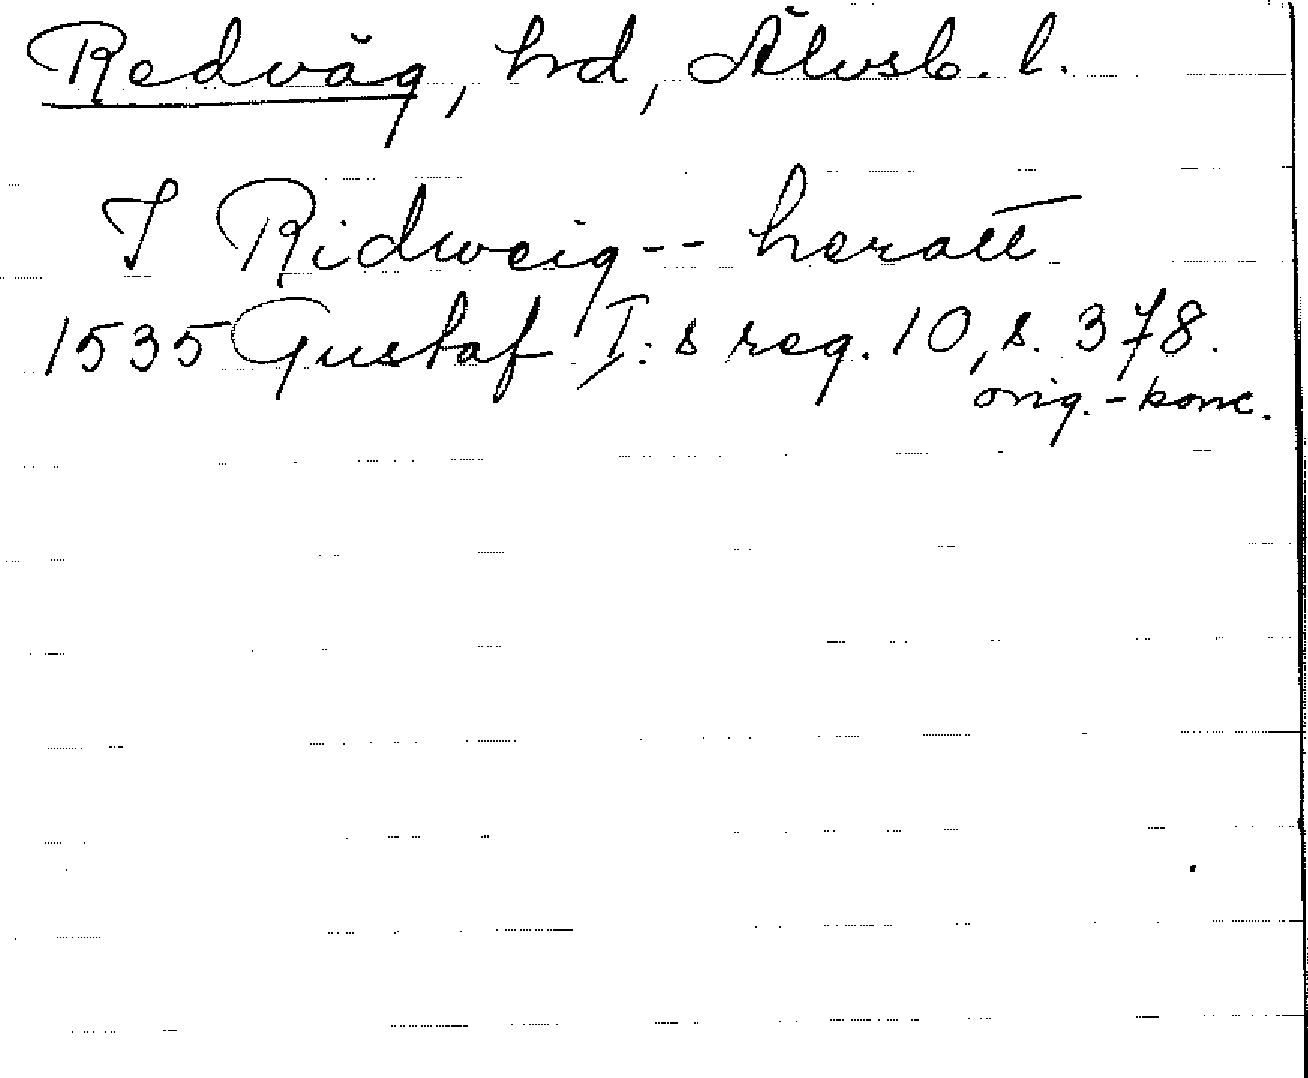 Redväg, hrd, Älvsb. l.
I Ridweig-- heratt
1535 Gustaf I:s reg. 10, s. 378.
orig.-konc.